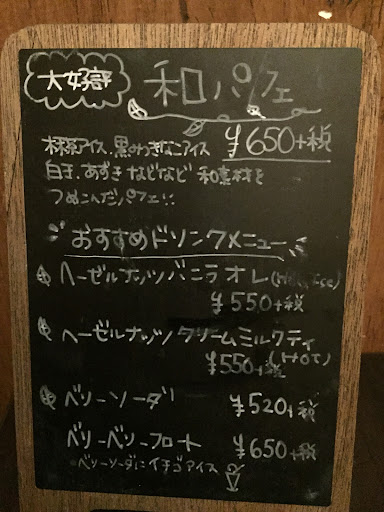 大好評
和パフェ
抹茶アイス、黒みつきなこアイス ¥650+税
白玉、あずきなどなど 和素材を
つめこんだパフェ!!
おすすめドリンクメニュー
ヘーゼルナッツバニラオレ(Hot, Ice)
¥550+税
ヘーゼルナッツクリームミルクティ
¥550+税 (Hot)
ベリーソーダ ¥520+税
ベリーベリーフロート ¥650+税
*ベリーソーダにイチゴアイス